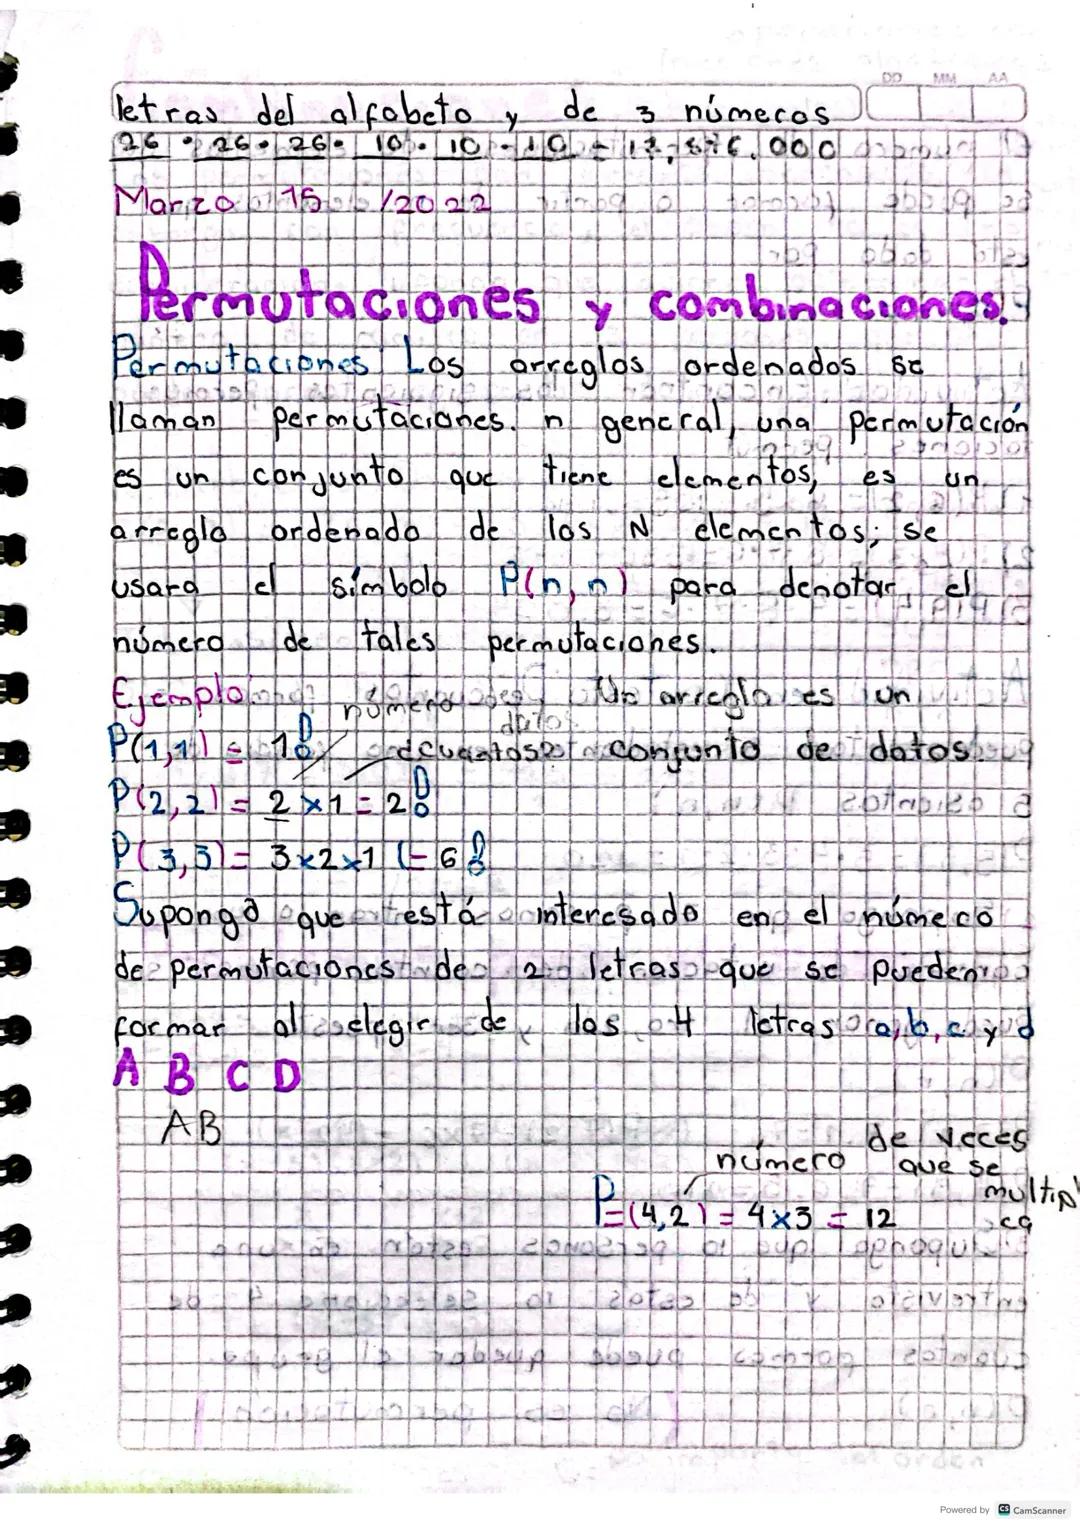 DD MM AA
letras del alfabeto y de 3 números
26 • 26 • 26 • 10 • 10 • 10 = 17,576.000
Marzo 15 /2022
Permutaciones y combinaciones.
Permutaciones Los arreglos ordenados se
llaman permutaciones. n general, una permutación
es un conjunto que tiene elementos, es un
arreglo ordenado de los N elementos; se
usara el símbolo P(n,n) para denotar el
número de tales permutaciones.
Ejemplo número Un arreglo es un
P(1,1) = 1! de cuantos datos conjunto de datos.
P(2,2) = 2×1 = 2!
P(3,3) = 3×2×1 = 6!
Suponga que está interesado en el número
de permutaciones de 2 letras que se pueden
formar al elegir de las 4 letras a, b, c y d
A B C D
AB
número de veces que se multiplica
P=(4,2) = 4×3 = 12
Powered by CS CamScanner